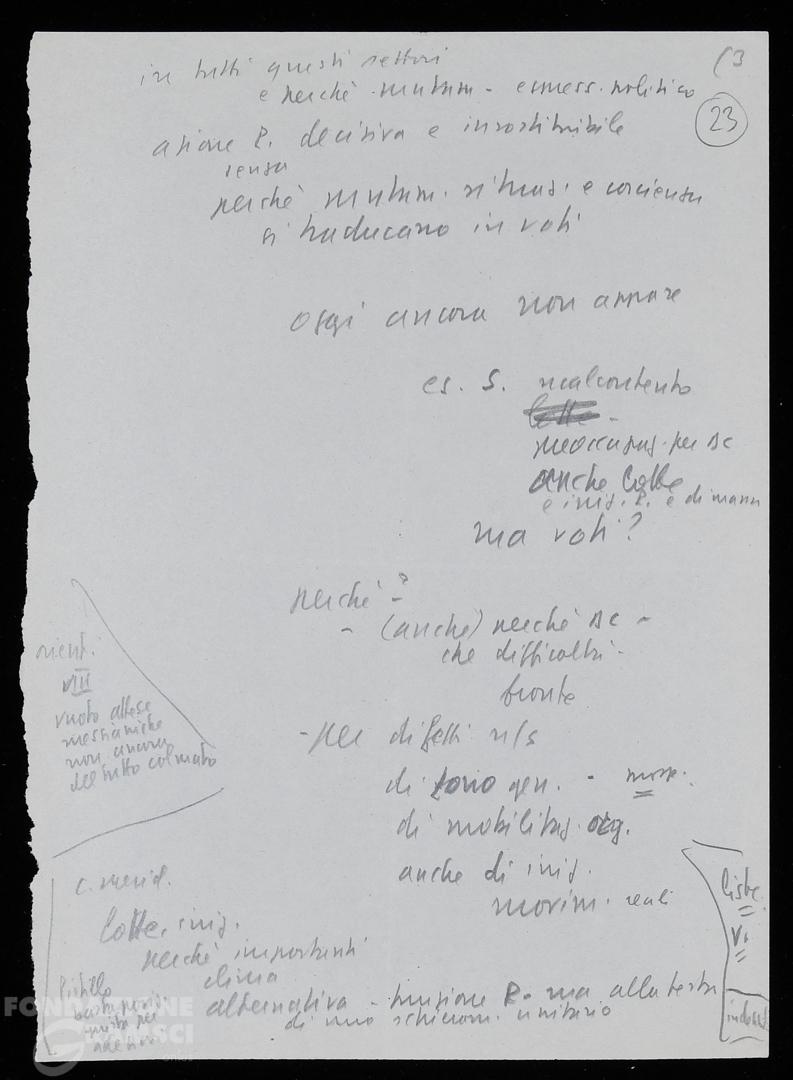 in tutti questi settori
(3
e perché mutam - espress. politico
23
azione P. decisiva e insostituibile
senza
perché mutam. situaz. e coscienza
si traducano in voti
Oggi ancora non appare
es. S. malcontento
preoccupaz. per DC
anche lotte
e iniz. P. e di massa
ma voti?
perché?
- (anche) perché DC -
che difficoltà -
fronte
- per difetti n/s
di tono gen. -
di mobilitaz. org.
anche di iniz.
movim. reali
orient.
VIII
vuoto attese
messianiche
non ancora
del tutto colmato
c. merid.
lotte, iniz.
perché importanti
clima
alternativa - funzione P. ma alla testa
di uno schieram. unitario
liste
V.
indust
FONDAZIONE
GRAMSCI
onlus